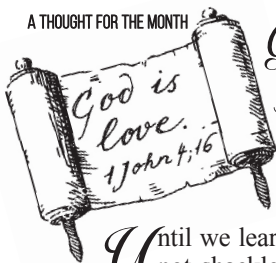 A THOUGHT FOR THE MONTH
God is
love.
1 John 4;16
Until we lear
not shackle